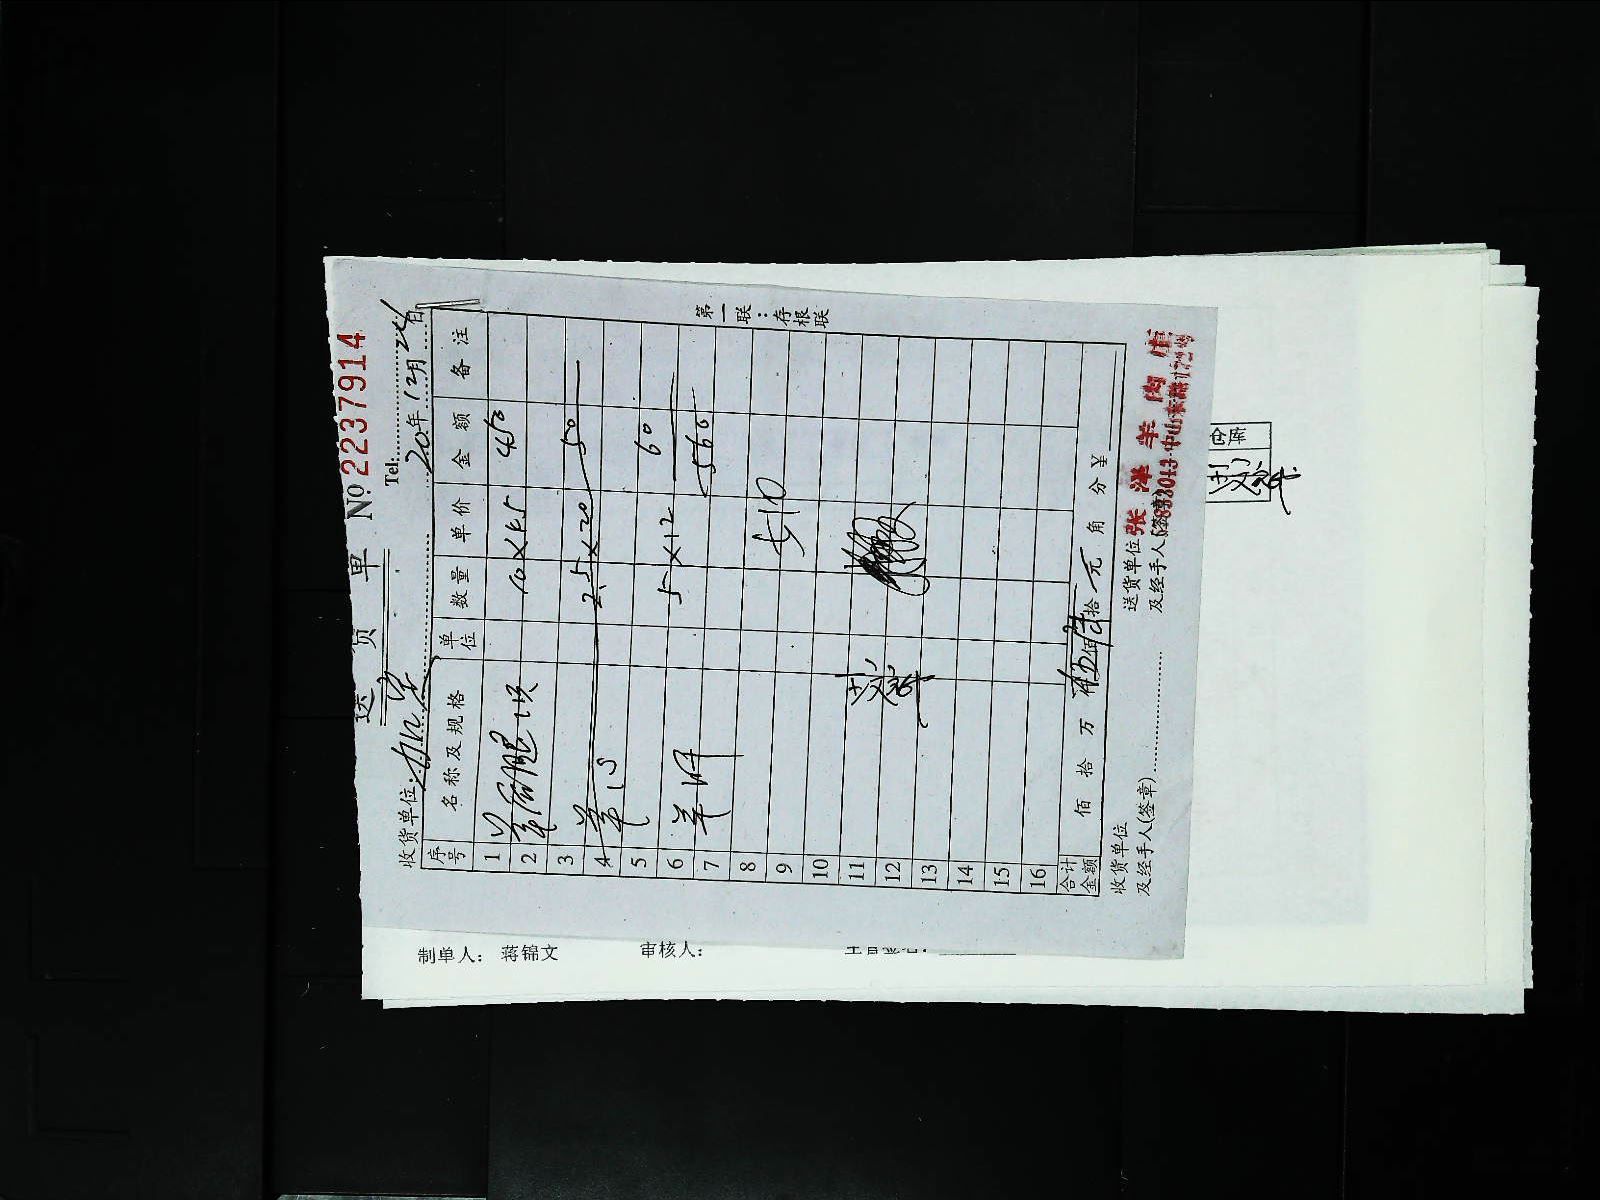 送 货 单 № 2237914
Tel:
收货单位: 20年12月24日
序号 名称及规格 单位 数量 单价 金额 备注
1 10×45 450
2 羊后腿1块
3 2.5×20 50
4 羊心
5 5×12 60
6 羊肝
7 560
8
9 510
10
11
12
13
14
15
16
合计金额 佰 拾 万 仟 伍佰 拾 元 角 分 ¥
收货单位及经手人(签章) 送货单位及经手人(签章)
张泽羊肉庄
第一联:存根联
制单人: 蒋锦文 审核人:
仓库